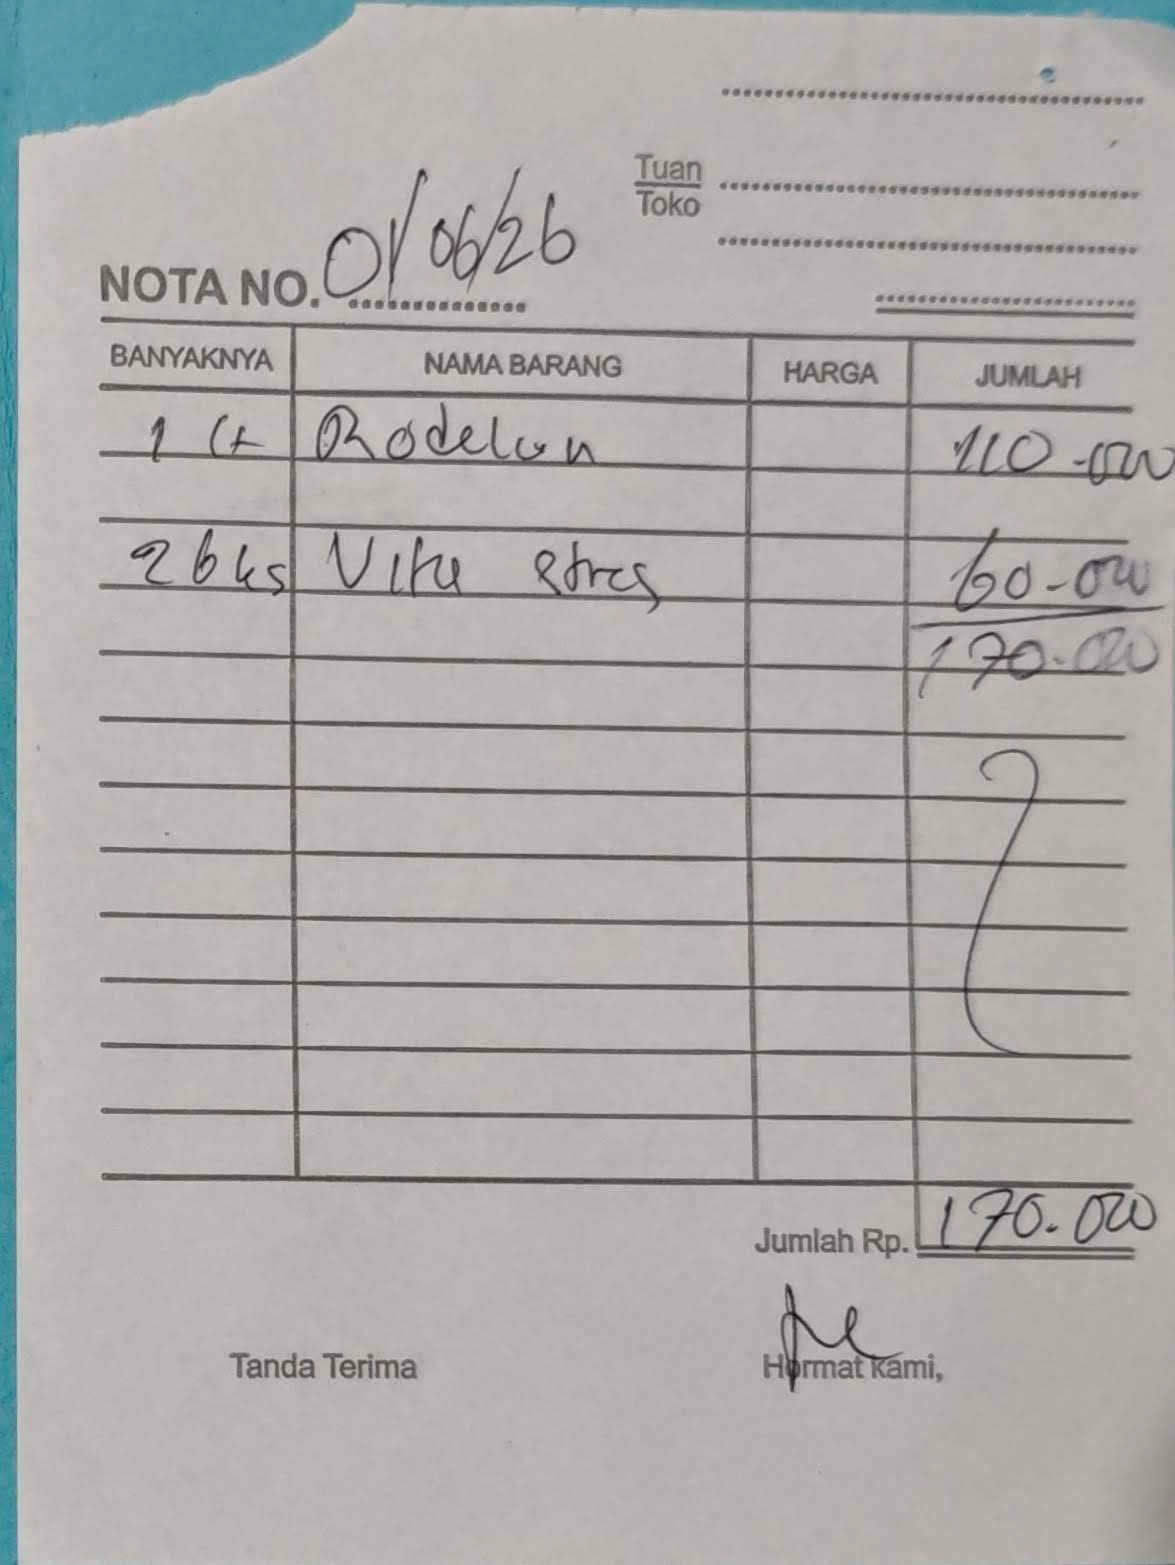 Tuan
Toko
NOTA NO. 01/06/26
BANYAKNYA NAMA BARANG HARGA JUMLAH
1 Lt Rodelon 110.000
2 bks Vita Stres 60.000
170.000
Jumlah Rp. 170.000
Tanda Terima Hormat Kami,